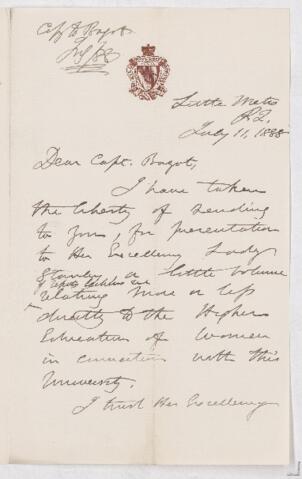 Little Metis
P.Q.
July 11, 1888
Dear Capt. Bagot,
I have taken
the liberty of sending
to you, for presentation
to Her Excellency Lady
Stanley a little volume
relating more or less
directly to the Higher
Education of Women
in connection with this
University.
I trust Her Excellency